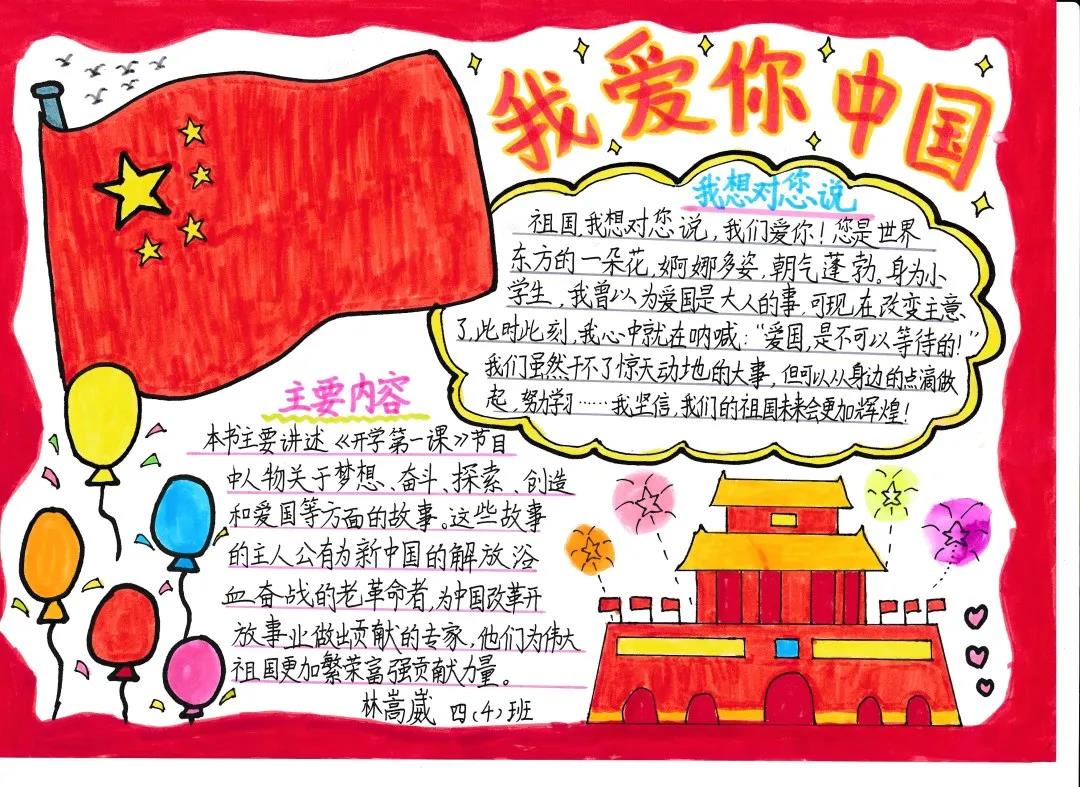 我爱你中国
我想对您说
祖国,我想对您说,我们爱你!您是世界
东方的一朵花,婀娜多姿,朝气蓬勃。身为小
学生,我曾以为爱国是大人的事,可现在改变主意
了,此时此刻,我心中就在呐喊:“爱国,是不可以等待的!”
我们虽然干不了惊天动地的大事,但可以从身边的点滴做
起,努力学习……我坚信,我们的祖国未来会更加辉煌!
主要内容
本书主要讲述《开学第一课》节目
中人物关于梦想、奋斗、探索、创造
和爱国等方面的故事。这些故事
的主人公有为新中国的解放浴
血奋战的老革命者,为中国改革开
放事业做出贡献的专家,他们为伟大
祖国更加繁荣富强贡献力量。
林嵩崴 四(4)班